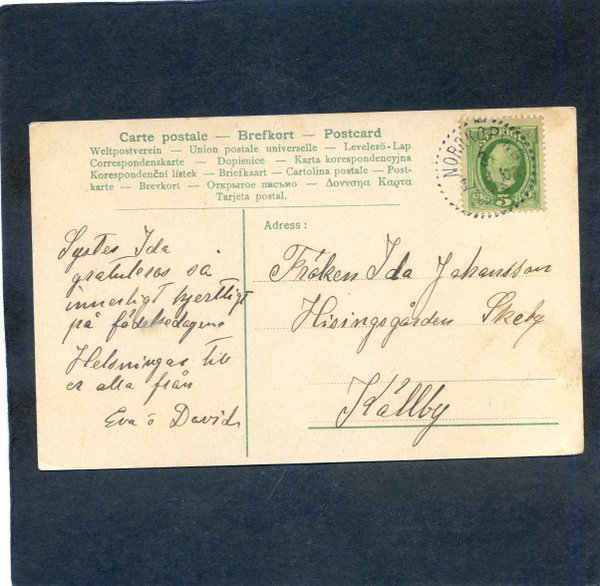 Carte postale — Brefkort — Postcard
Weltpostverein — Union postale universelle — Levelező-Lap
Correspondenzkarte — Dopisnice — Karta korespondencyjna
Korespondenční lístek — Briefkaart — Cartolina postale — Post-
karte — Brevkort — Открытое письмо — Δονυσηα Καρτα
Tarjeta postal.
NORRKÖ
5
Adress:
Syster Ida
gratuleras så
innerligt hjertligt
på födelsedagen
Helsningar till
er alla från
Eva o David
Fröken Ida Johansson
Hisingsgården Skeby
Källby